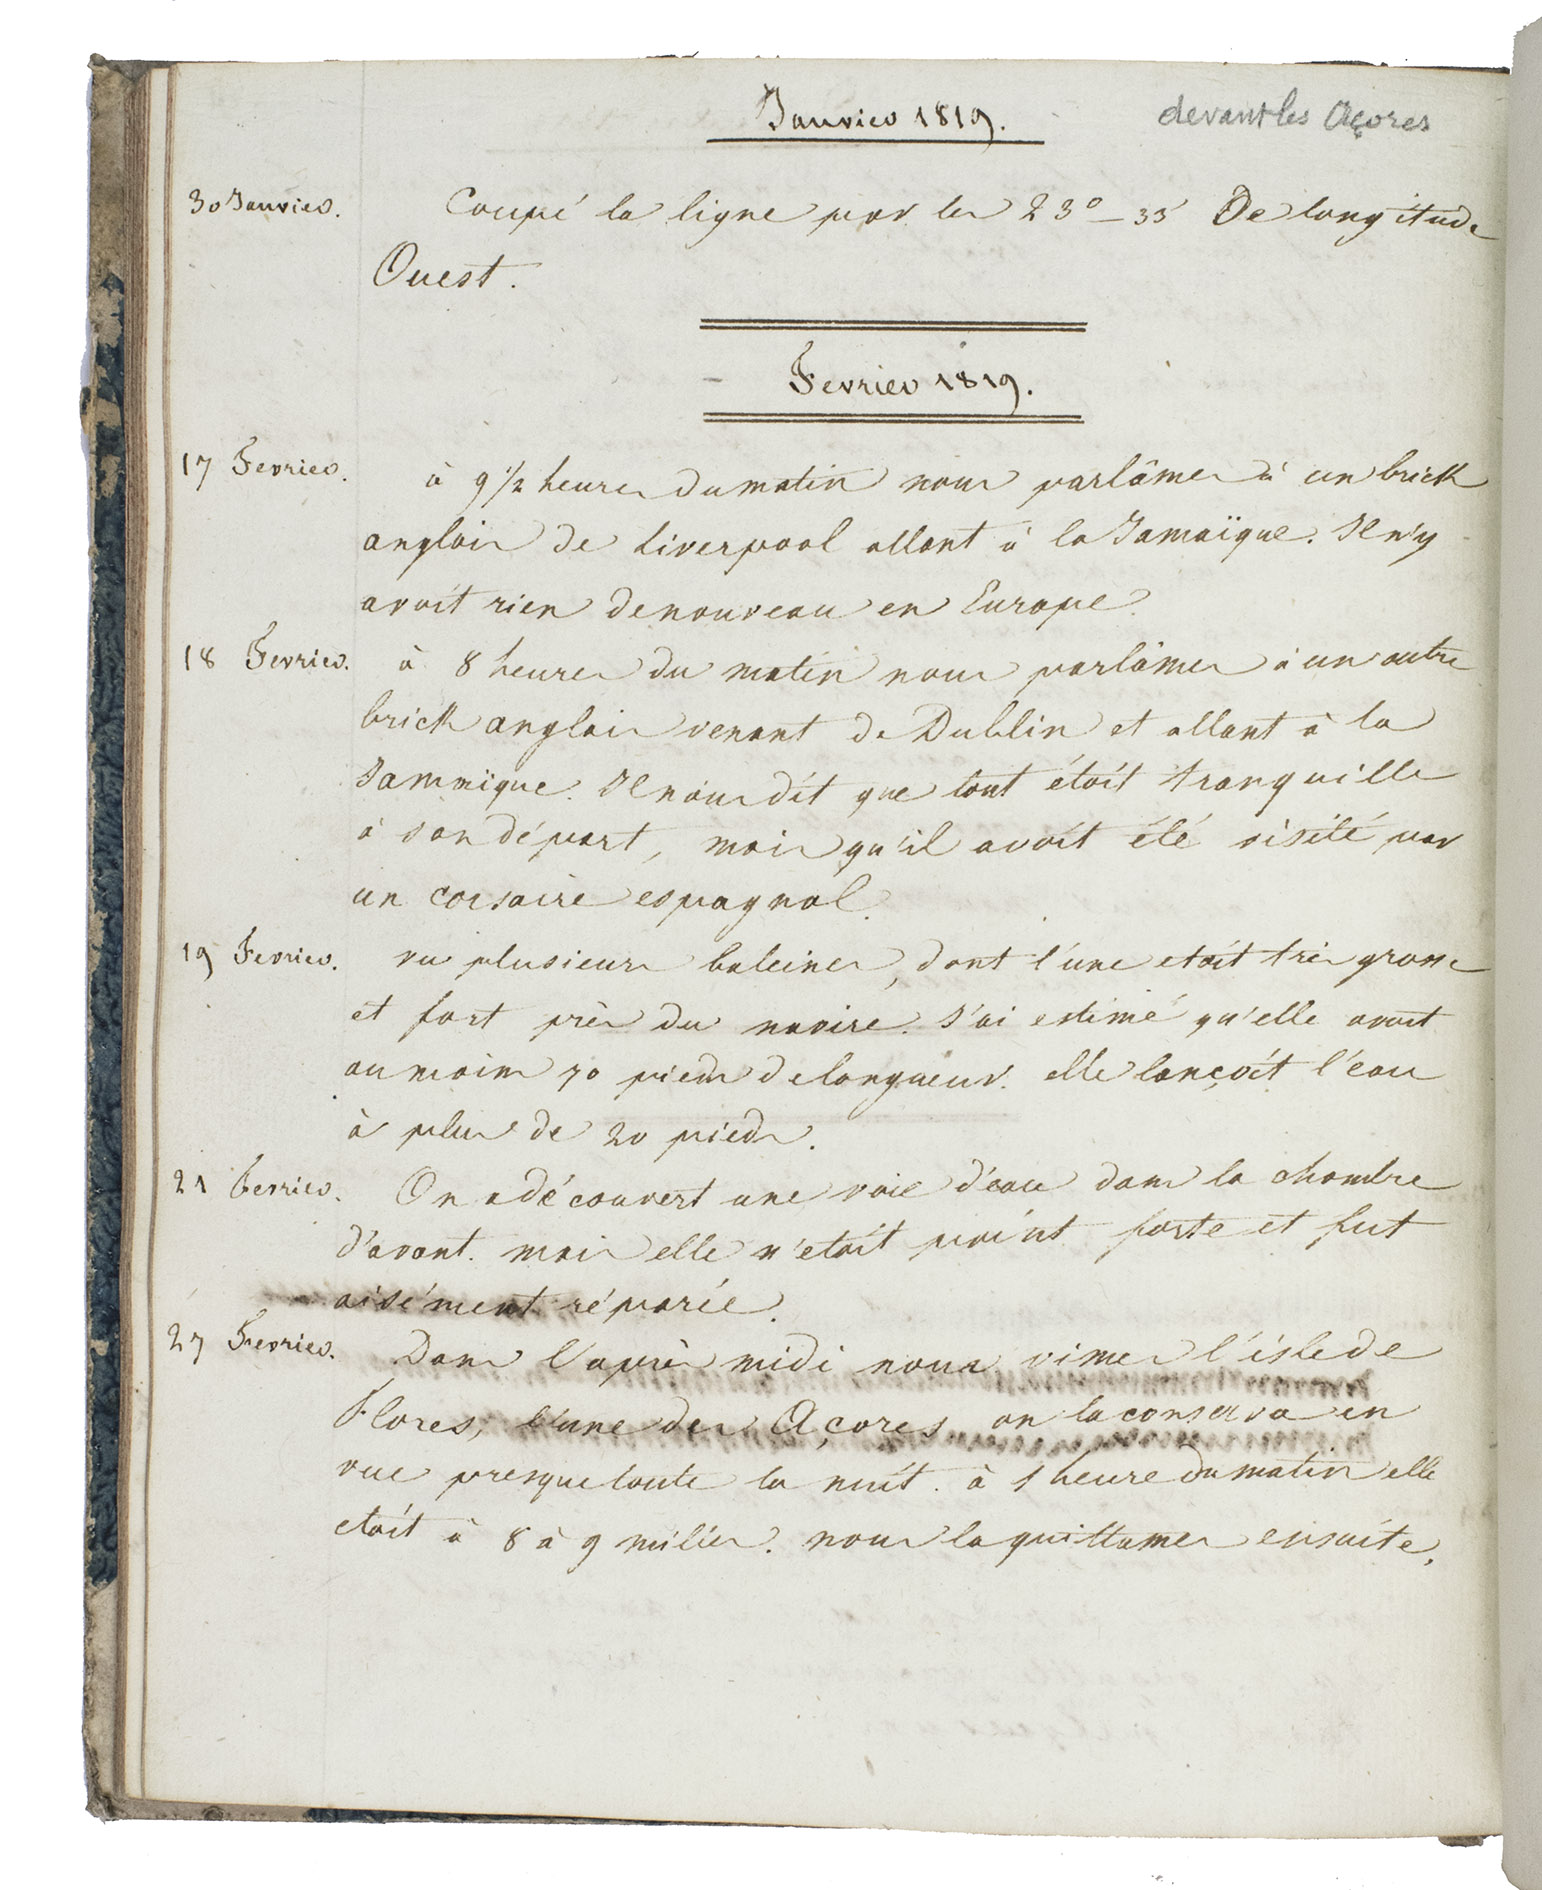 Janvier 1819.
devant les Açores
30 Janvier. Coupé la ligne par les 23° – 33' De longitude
Ouest.
Fevrier 1819.
17 Fevrier. à 9 1/2 heures du matin nous parlâmes à un brick
anglais de Liverpool allant à la Jamaïque. Il n'y
avoit rien de nouveau en Europe.
18 Fevrier. à 8 heures du matin nous parlâmes à un autre
brick anglais venant de Dublin et allant à la
Jammïque. Il nous dit que tout étoit tranquille
à son départ, mais qu'il avoit été visité par
un corsaire espagnol.
19 Fevrier. vu plusieurs baleines, dont l'une etoit très grosse
et fort près du navire. J'ai estimé qu'elle avoit
au moins 70 pieds de longueur. elle lançoit l'eau
à plus de 20 pieds.
21 Fevrier. On a découvert une voie d'eau dans la chambre
d'avant. mais elle n'etoit point forte et fut
aisément réparée.
27 Fevrier. Dans l'après midi nous vimes l'isle de
Flores, l'une des Açores on la conserva en
vue presque toute la nuit. à 1 heure du matin elle
etoit à 8 à 9 milies. nous la quittames ensuite.